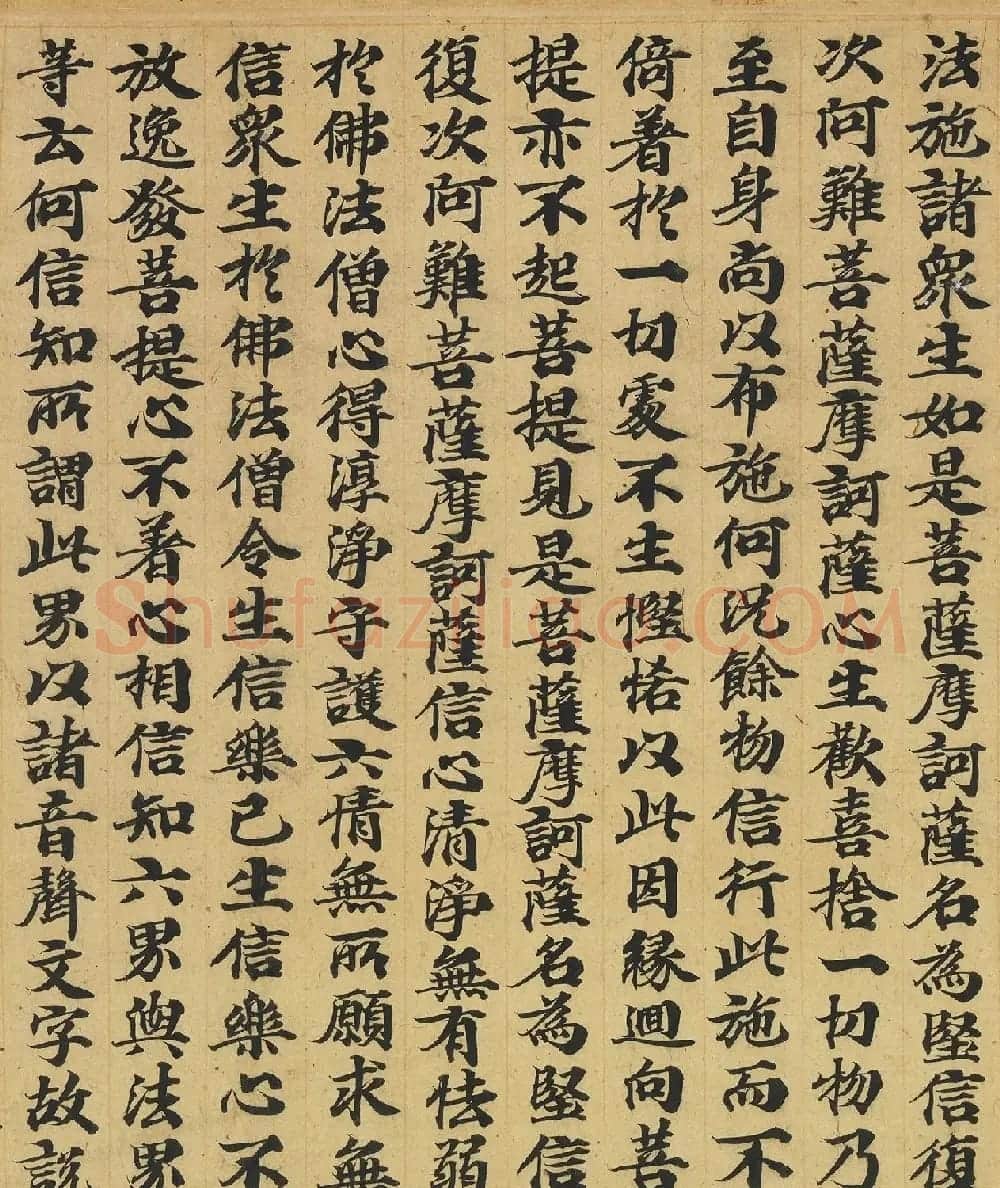 法施諸衆生如是菩薩摩訶薩名為堅信復
次阿難菩薩摩訶薩心生歡喜捨一切物乃
至自身尚以布施何況餘物信行此施而不
倚著於一切處不生慳悋以此因緣迴向菩
提亦不起菩提見是菩薩摩訶薩名為堅信
復次阿難菩薩摩訶薩信心清淨無有怯弱
於佛法僧心得淳淨守護六情無所願求無
信衆生於佛法僧令生信樂已生信樂心不
放逸發菩提心不著心相信知六界與法界
等云何信知所謂此界以諸音聲文字故説
Shufaziliao.COM